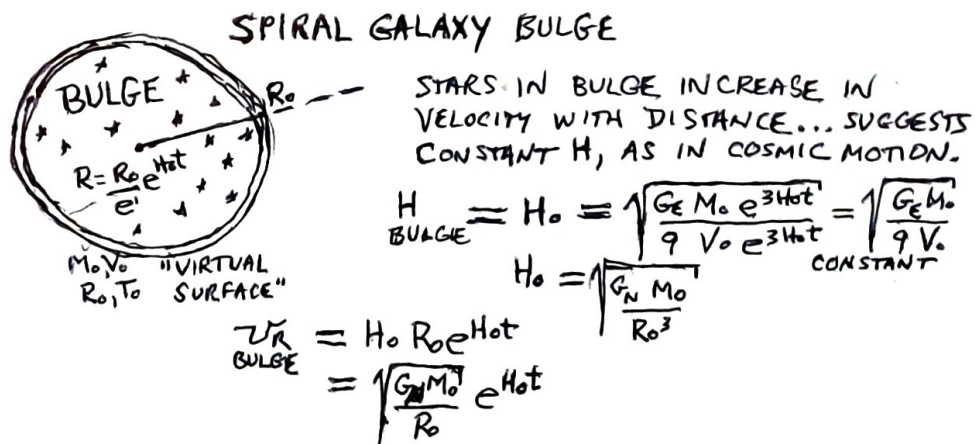 SPIRAL GALAXY BULGE
BULGE
R₀
R = R₀/e¹ e^H₀t
M₀, V₀
R₀, T₀
"VIRTUAL
SURFACE"
STARS IN BULGE INCREASE IN
VELOCITY WITH DISTANCE... SUGGESTS
CONSTANT H, AS IN COSMIC MOTION.
H BULGE = H₀ = √(G_E M₀ e^3H₀t / 9 V₀ e^3H₀t) = √(G_E M₀ / 9 V₀)
CONSTANT
H₀ = √(G_N M₀ / R₀³)
v_R BULGE = H₀ R₀ e^H₀t
= √(G_N M₀ / R₀) e^H₀t